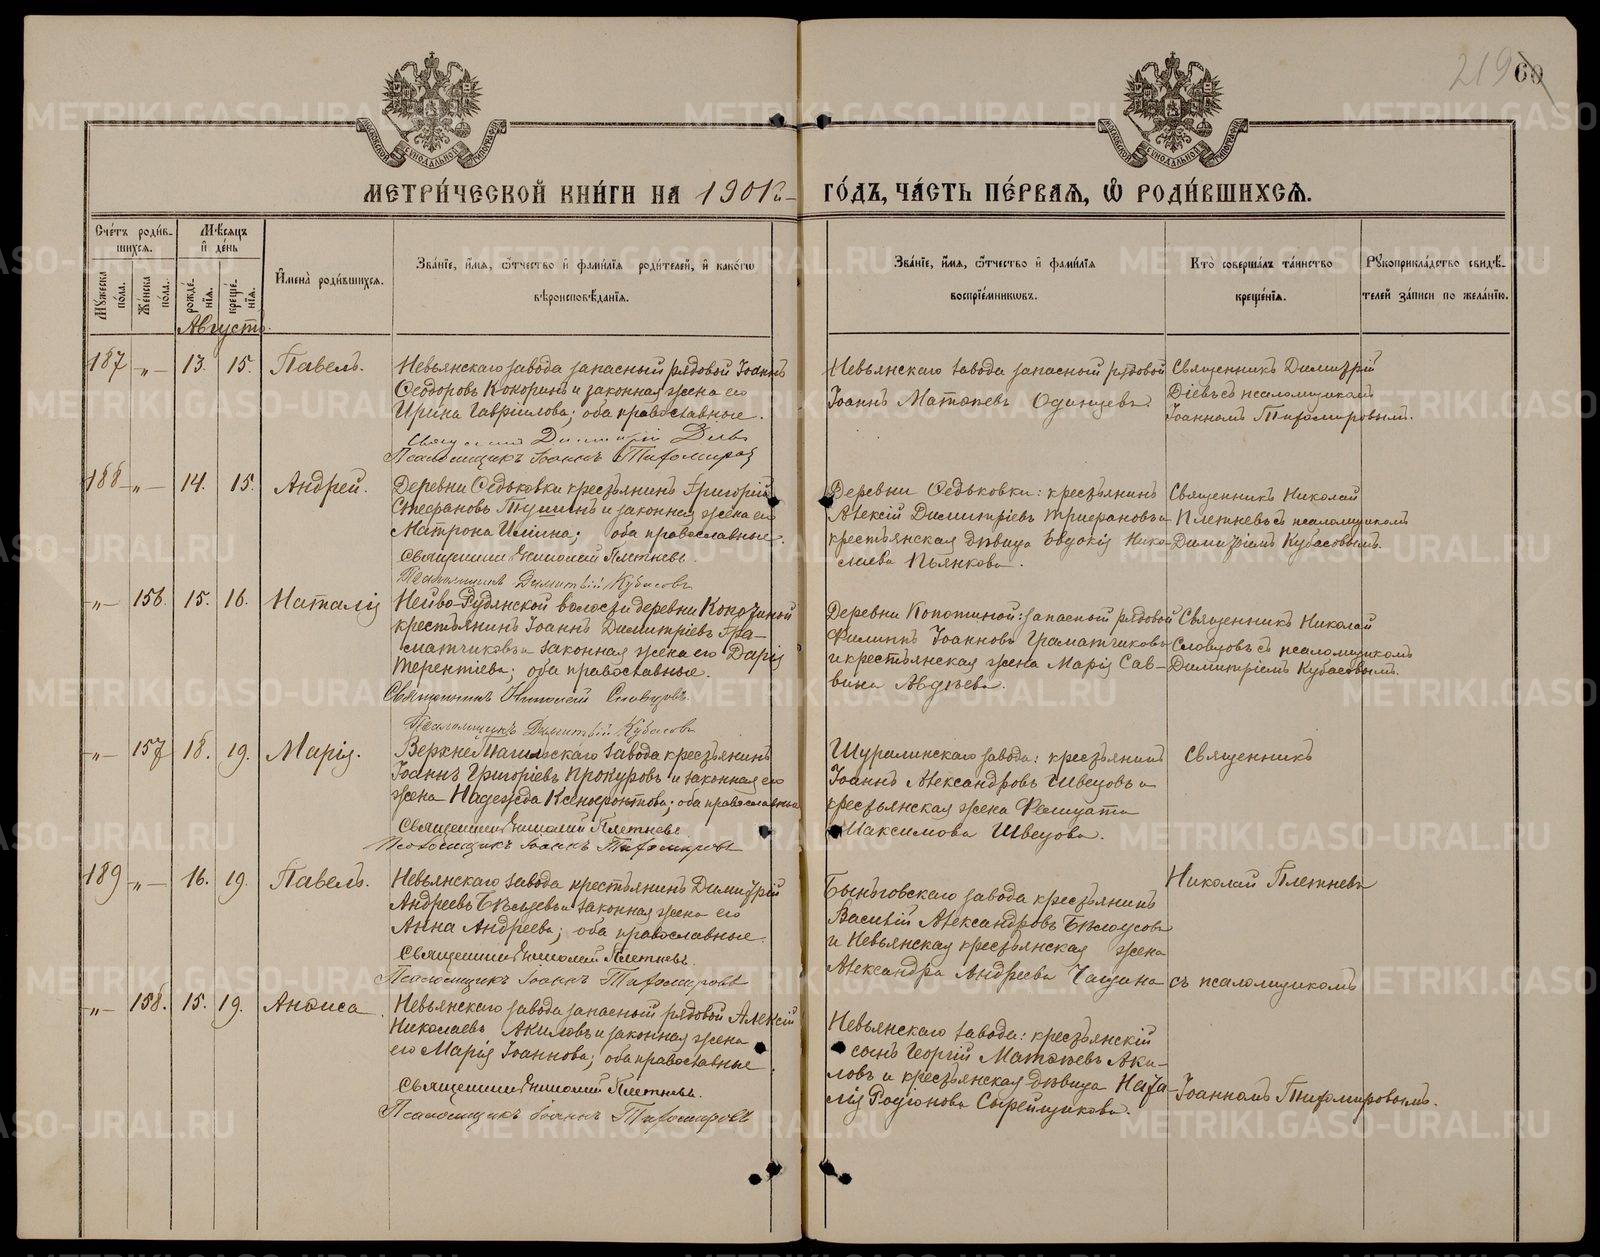 219 60
МОСКОВСКОЙ СѴНОДАЛЬНОЙ ТИПОГРАФІИ
МОСКОВСКОЙ СѴНОДАЛЬНОЙ ТИПОГРАФІИ
МЕТРИ́ЧЕСКОЙ КНИ́ГИ НА 1901й ГО́ДЪ, ЧА́СТЬ ПЕ́РВАѦ, Ѿ РОДИ́ВШИХСѦ.
Сче́тъ роди́в-
шихсѧ.
Мѣ́сѧцъ
и҆ де́нь
Мꙋ́жеска по́ла.
Же́нска по́ла.
рожде́-
нїѧ.
креще́-
нїѧ.
И҆мена̀ роди́вшихсѧ.
Зва́нїе, и҆́мѧ, ѻ҆́тчество и҆ фами́лїѧ роди́телей, и҆ како́гѡ
вѣроисповѣ́данїѧ.
Зва́нїе, и҆́мѧ, ѻ҆́тчество и҆ фами́лїѧ
воспрїе́мникѡвъ.
Кто̀ соверша́лъ та́инство
креще́нїѧ.
Рꙋкоприкла́дство свидѣ́-
телей за́писи по жела́нїю.
Августъ.
187 „ 13. 15. Павелъ.
Невьянскаго завода запасный рядовой Іоаннъ
Ѳеодоровъ Кокоринъ и законная жена его
Ирина Гавриилова; оба православные.
Священникъ Димитрій Діевъ
Псаломщикъ Іоаннъ Тихомировъ
Невьянскаго завода запасный рядовой
Іоаннъ Матѳеевъ Одинцевъ
Священникъ Димитрій
Діевъ съ псаломщикомъ
Іоанномъ Тихомировымъ.
188 „ 14. 15. Андрей.
Деревни Ѳедьковки крестьянинъ Григорій
Стефановъ и законная жена его
Матрона Ильина; оба православные.
Священникъ Николай Плетневъ.
Псаломщикъ Димитрій Кубасовъ
Деревни Ѳедьковки: крестьянинъ
Алексій Димитріевъ Трифановъ и
крестьянская дѣвица Евдокія Нико-
лаева Пьянкова.
Священникъ Николай
Плетневъ съ псаломщикомъ
Димитріемъ Кубасовымъ.
„ 156. 15. 16. Наталія
Нейво-Рудянской волости деревни
крестьянинъ Іоаннъ Димитріевъ Гра-
матчиковъ и законная жена его Дарія
Терентіева; оба православные.
Священникъ Николай Словцовъ.
Псаломщикъ Димитрій Кубасовъ
Деревни запасный рядовой
Филиппъ Іоанновъ Граматчиковъ
и крестьянская жена Марія Сав-
вина Авдѣева.
Священникъ Николай
Словцовъ съ псаломщикомъ
Димитріемъ Кубасовымъ.
„ 157 18. 19. Марія.
Верхне-Тагильскаго завода крестьянинъ
Іоаннъ Григоріевъ Прокуровъ и законная его
жена Надежда Ксенофонтова; оба православные
Священникъ Николай Плетневъ.
Псаломщикъ Іоаннъ Тихомировъ
Шуралинскаго завода: крестьянинъ
Іоаннъ Александровъ Швецовъ и
крестьянская жена
Максимова Швецова.
Священникъ
189 „ 16. 19. Павелъ.
Невьянскаго завода крестьянинъ Димитрій
Андреевъ и законная жена его
Анна Андреева; оба православные.
Священникъ Николай Плетневъ.
Псаломщикъ Іоаннъ Тихомировъ
Быньговскаго завода крестьянинъ
Василій Александровъ Бѣлоусовъ
и Невьянская крестьянская жена
Александра Андреева Чащина
Николай Плетневъ
съ псаломщикомъ
„ 158. 15. 19. Анѳиса.
Невьянскаго завода запасный рядовой Алексій
Николаевъ Акиловъ и законная жена
его Марія Іоаннова; оба православные.
Священникъ Николай Плетневъ.
Псаломщикъ Іоаннъ Тихомировъ
Невьянскаго завода: крестьянскій
сынъ Георгій Матѳеевъ Аки-
ловъ и крестьянская дѣвица Ната-
лія Родіонова Сырейщикова.
Іоанномъ Тихомировымъ.
METRIKI.GASO-URAL.RU